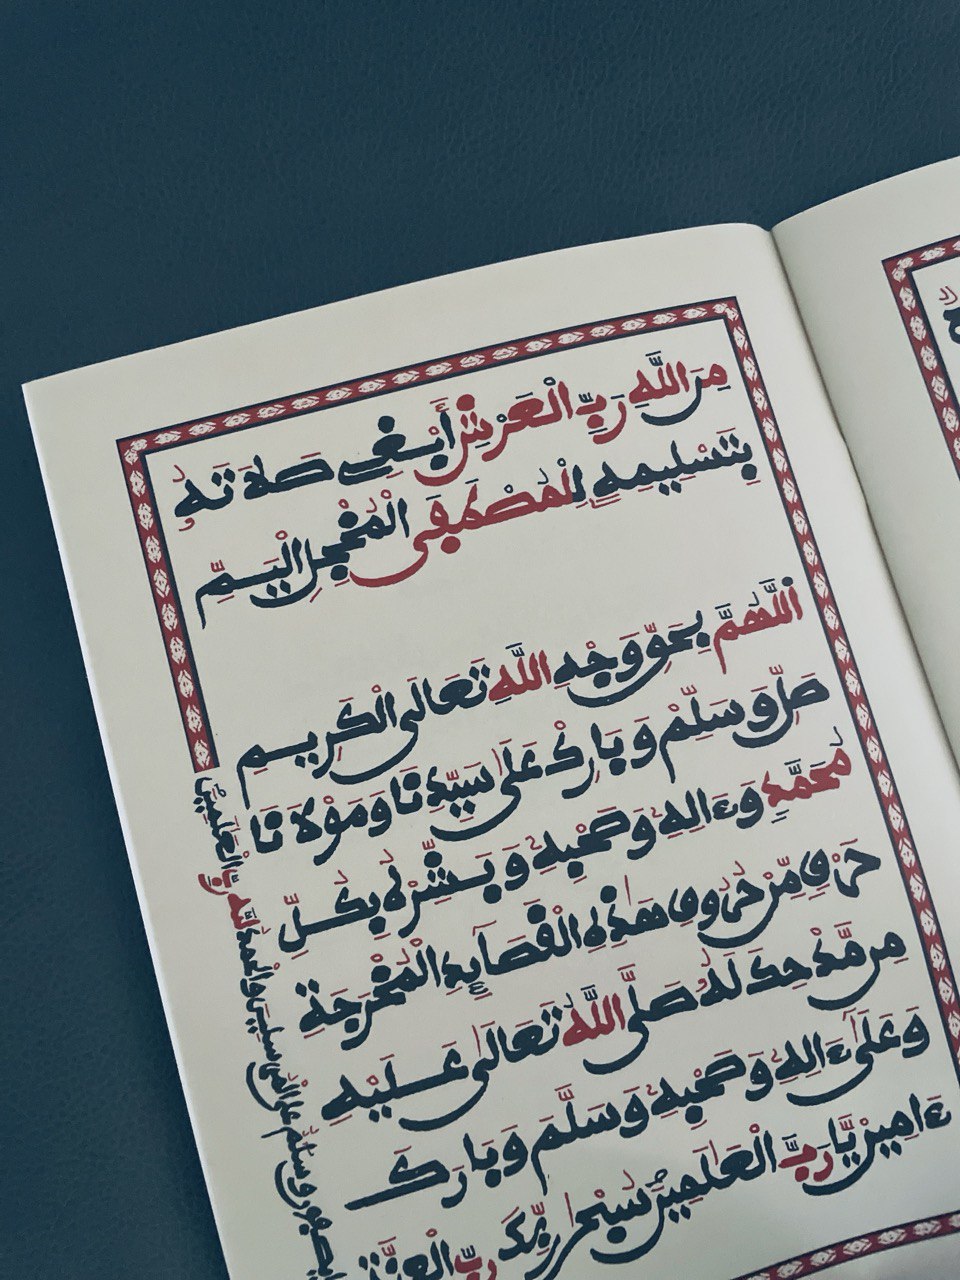 مِنَ اللَّهِ رَبِّ الْعَرْشِ أَبْغِي صَلَاتَهُ
بِتَسْلِيمِهِ لِلْمُصْطَفَى الْمُخْجِلِ الْيَمِّ
اللَّهُمَّ بِحَقِّ وَجْهِ اللَّهِ تَعَالَى الْكَرِيمِ
صَلِّ وَسَلِّمْ وَبَارِكْ عَلَى سَيِّدِنَا وَمَوْلَانَا
مُحَمَّدٍ وَءَالِهِ وَصَحْبِهِ وَبَشِّرْهُ بِكُلِّ
حَرْفٍ مِّنْ حُرُوفِ هَذِهِ الْقَصَائِدِ الْمُخْرَجَةِ
مِن مَّدْحِكَ لَهُ صَلَّى اللَّهُ تَعَالَى عَلَيْهِ
وَعَلَى ءَالِهِ وَصَحْبِهِ وَسَلَّمَ وَبَارَكَ
ءَامِينَ يَا رَبَّ الْعَالَمِينَ سُبْحَانَ رَبِّكَ رَبِّ الْعِزَّةِ
يَصِفُونَ وَسَلَامٌ عَلَى الْمُرْسَلِينَ وَالْحَمْدُ لِلَّهِ رَبِّ الْعَالَمِينَ